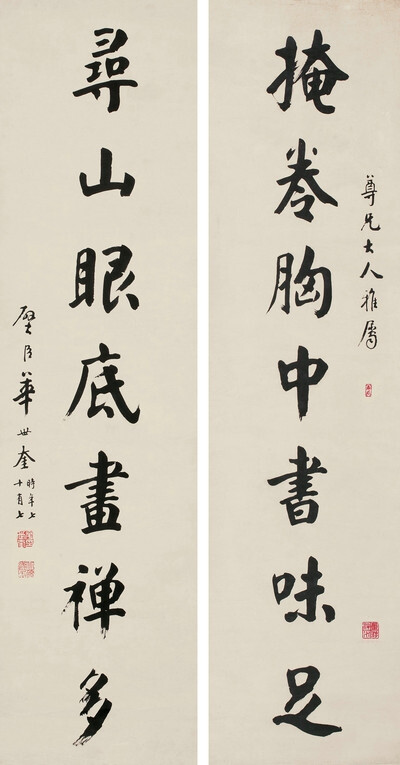 尊先大人雅属
掩卷胸中書味足
尋山眼底畫禅多
璧臣華世奎
時年七
十有七